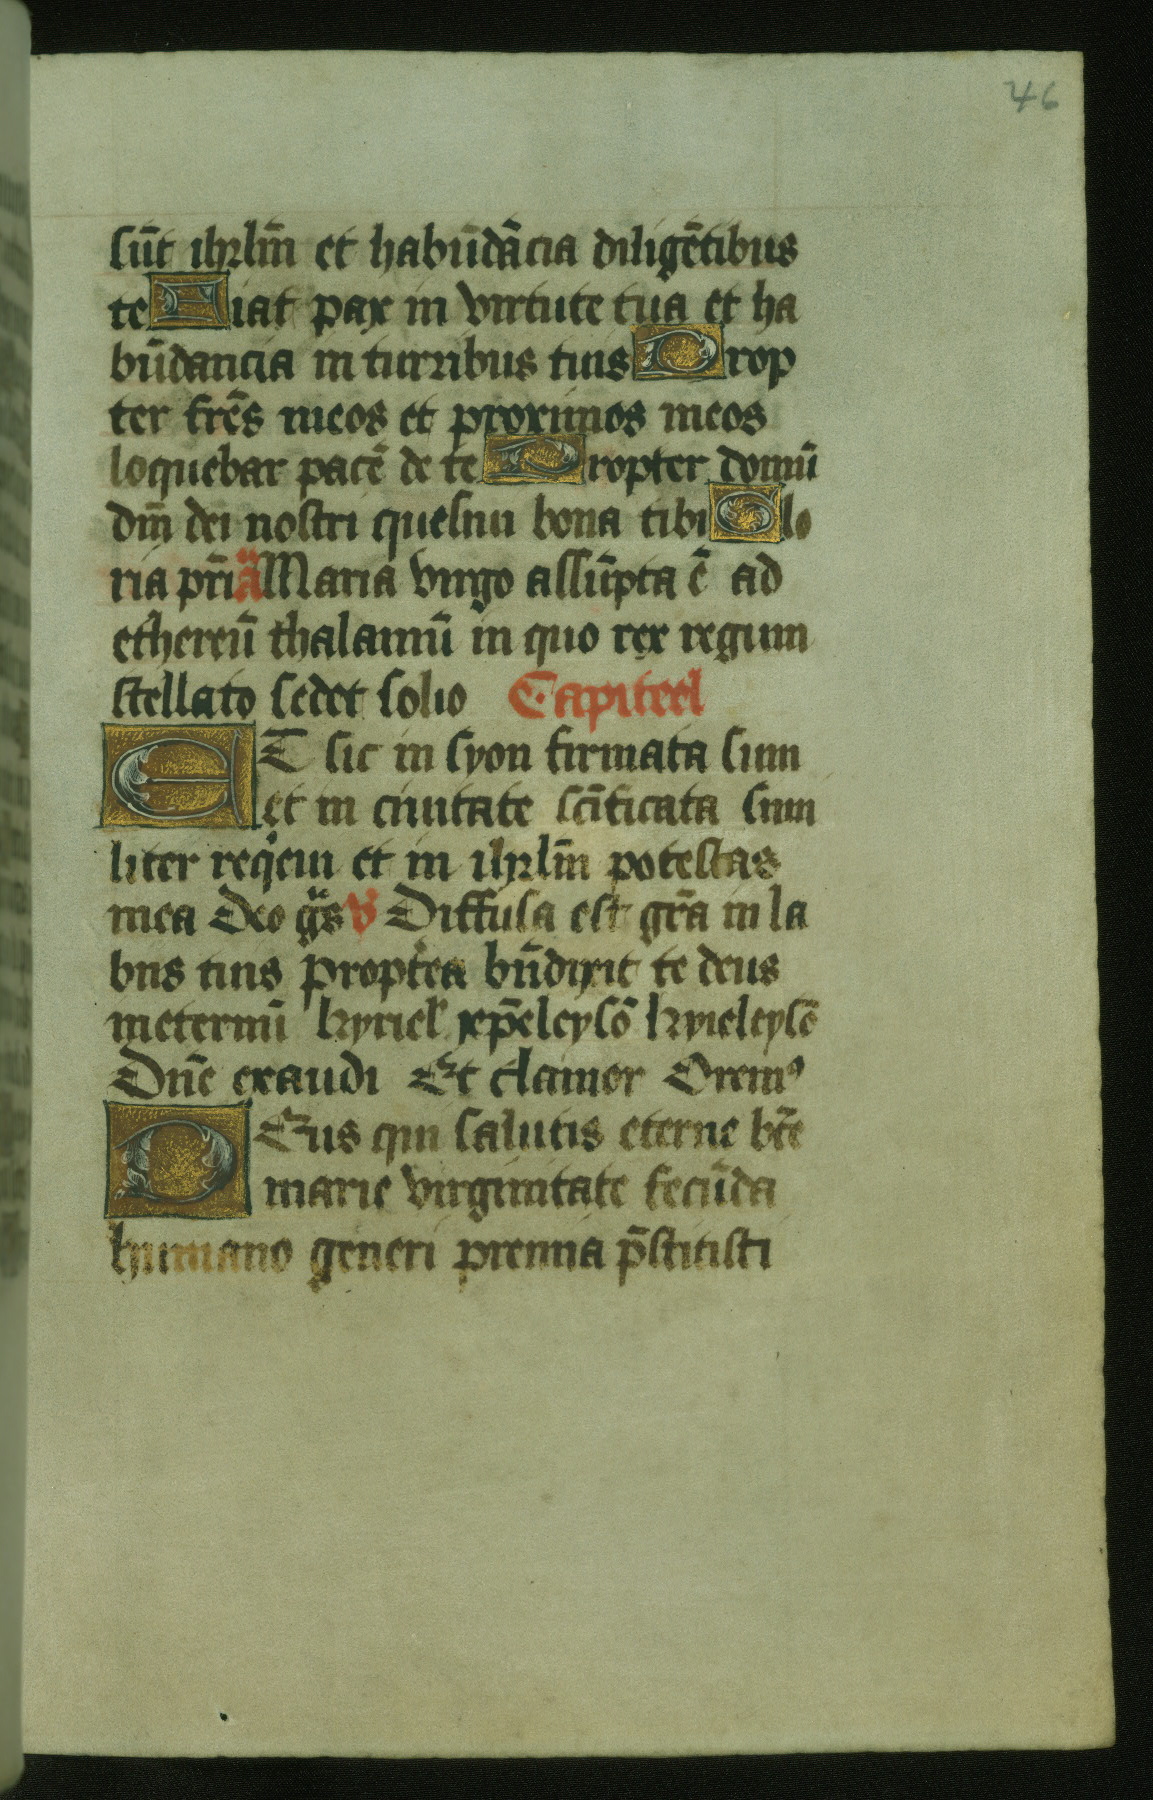 46
sūt ihrl̄m et habūdācia diligētibus
te Fiat pax in virtute tua et ha
būdancia in turribus tuis Prop
ter fr̄es meos et proximos meos
loquebar pacē de te Propter domū
dn̄i dei nostri quesiui bona tibi Glo
ria pr̄i ā Maria virgo assūpta ē ad
ethereū thalamū in quo rex regum
stellato sedet solio Capiteel
ET sic in syon firmata sum
et in ciuitate sc̄ificata simi
liter reqͥeui et in ihrl̄m potestas
mea Deo gͣs v̄ Diffusa est gr̄a in la
biis tuis Propt̾ea bn̄dixit te deus
ineternū kyriel̾ xp̄eleysō kyrieleysō
Dn̄e exaudi Et clamor Oremꝰ
DEus qui salutis eterne bt̄e
marie virginitate fecūda
humano generi premia p̄stitisti